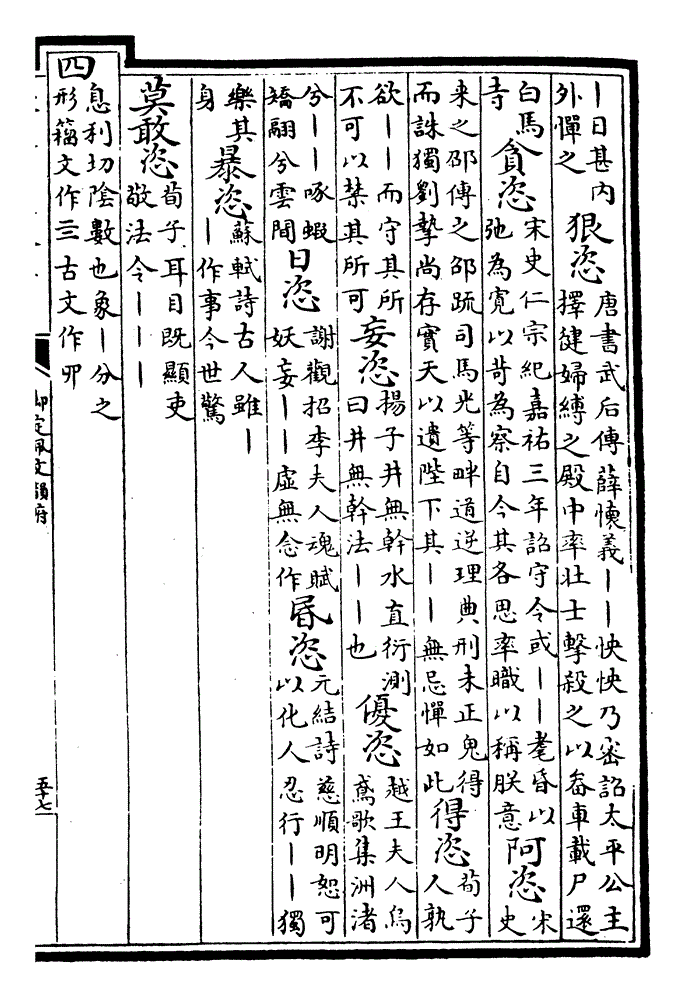 丨日甚内外憚之狠恣唐書武后傳薛懷義丨丨怏怏乃密詔太平公主擇健婦縛之殿中率壯士擊殺之以畚車載尸還
白馬寺貪恣宋史仁宗紀嘉祐三年詔守令或丨丨耄昏以弛為寛以苛為察自今其各思率職以稱朕意阿恣宋史
来之邵傳之邵䟽司馬光等畔道逆理典刑未正鬼得而誅獨劉摯尚存實天以遺陛下其丨丨無忌憚如此得恣荀子人孰
欲丨丨而守其所不可以禁其所可妄恣揚子井無幹水直衍測曰井無幹法丨丨也優恣越王夫人烏鳶歌集洲渚
兮丨丨啄蝦矯翮兮雲間日恣謝觀招李夫人魂賦妖妄丨丨虛無念作昬恣元結詩慈順明恕可以化人忍行丨丨獨
樂其身暴恣蘇軾詩古人雖丨丨作事今世驚
莫敢恣荀子耳目既顯吏敬法令丨丨丨
四息利切陰數也象丨分之形籀文作亖古文作𦉭
御定佩文韻府
五十七